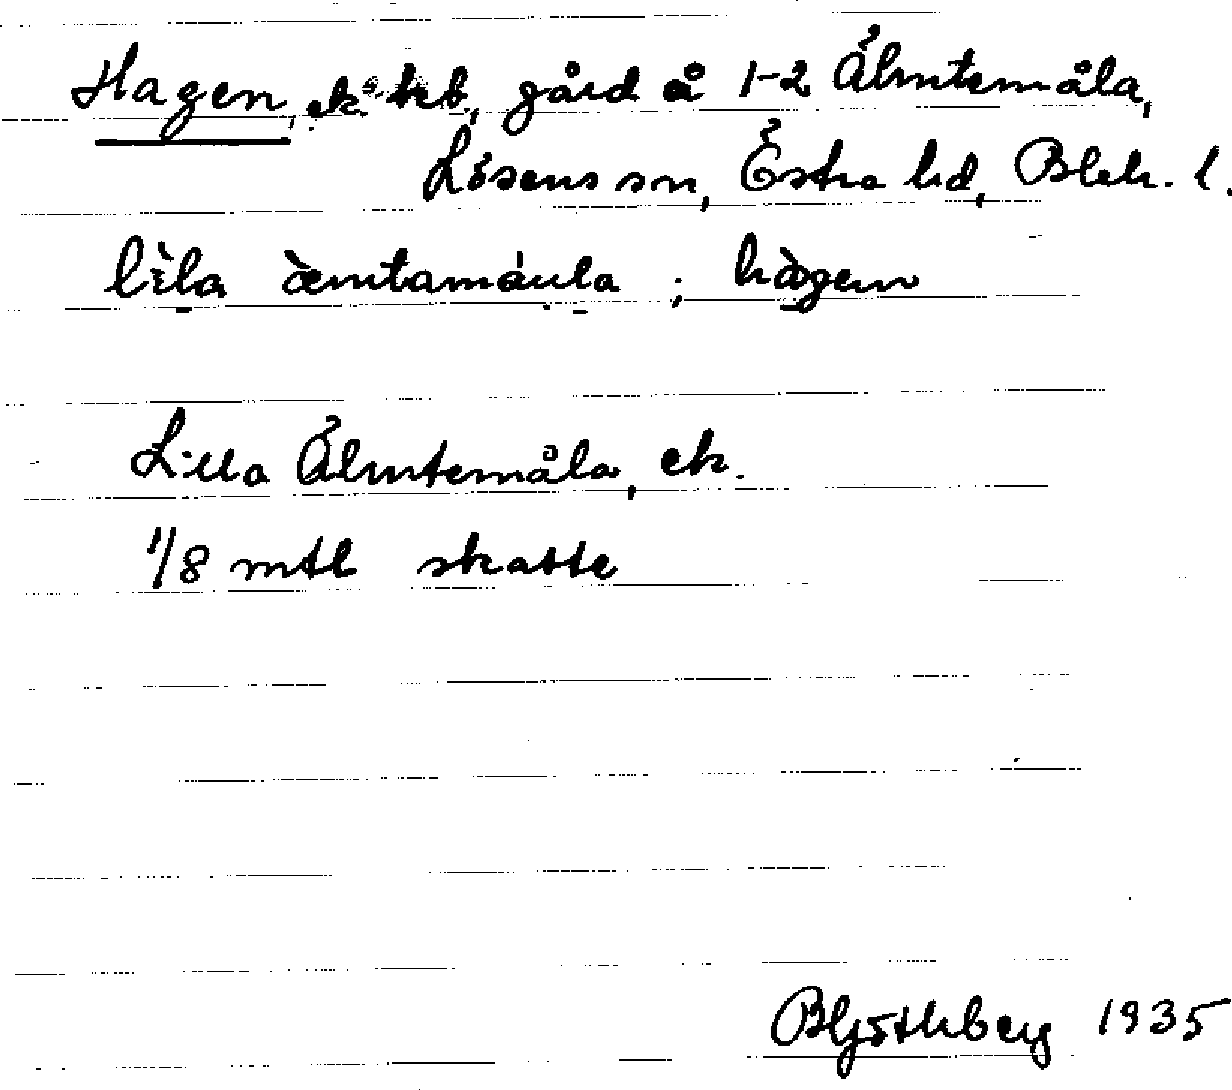 Hagen, ek o kb, gård å 1-2 Älmtemåla,
Lösens sn, Östra hd, Blek. l.
lìla ä̀mtamáula ; hàgen
Lilla Älmtemåla, ek.
1/8 mtl skatte
1935